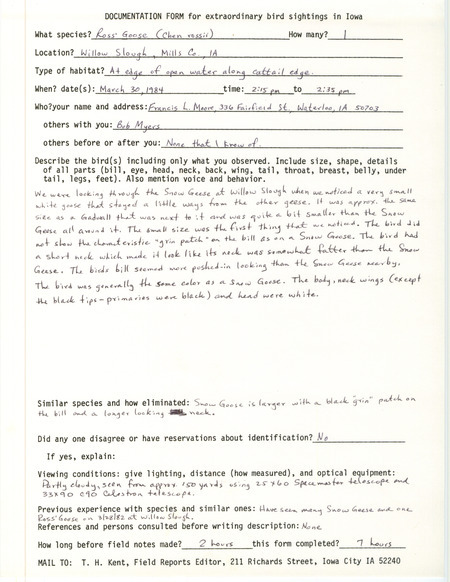 DOCUMENTATION FORM for extraordinary bird sightings in Iowa
What species? Ross' Goose (Chen rossii) How many? 1
Location? Willow Slough, Mills Co, IA
Type of habitat? At edge of open water along cattail edge.
When? date(s): March 30, 1984 time: 2:15 pm to 2:35 pm
Who? your name and address: Francis L. Moore, 336 Fairfield St, Waterloo, IA 50703
others with you: Bob Myers
others before or after you: None that I know of.
Describe the bird(s) including only what you observed. Include size, shape, details
of all parts (bill, eye, head, neck, back, wing, tail, throat, breast, belly, under
tail, legs, feet). Also mention voice and behavior.
We were looking through the Snow Geese at Willow Slough when we noticed a very small
white goose that stayed a little ways from the other geese. It was approx. the same
size as a Gadwall that was next to it and was quite a bit smaller than the Snow
Geese all around it. The small size was the first thing that we noticed. The bird did
not show the characteristic "grin patch" on the bill as on a Snow Goose. The bird had
a short neck which made it look like its neck was somewhat fatter than the Snow
Geese. The birds bill seemed more pushed-in looking than the Snow Goose nearby.
The bird was generally the same color as a Snow Goose. The body, neck wings (except
the black tips-primaries were black) and head were white.
Similar species and how eliminated: Snow Goose is larger with a black "grin" patch on
the bill and a longer looking neck.
Did any one disagree or have reservations about identification? No
If yes, explain:
Viewing conditions: give lighting, distance (how measured), and optical equipment:
Partly cloudy, seen from approx. 150 yards using 25x60 Spacemaster telescope and
33x90 C90 Celestron telescope.
Previous experience with species and similar ones: Have seen many Snow Geese and one
Ross' Goose on 3/22/82 at Willow Slough.
References and persons consulted before writing description: None
How long before field notes made? 2 hours this form completed? 7 hours
MAIL TO: T. H. Kent, Field Reports Editor, 211 Richards Street, Iowa City IA 52240